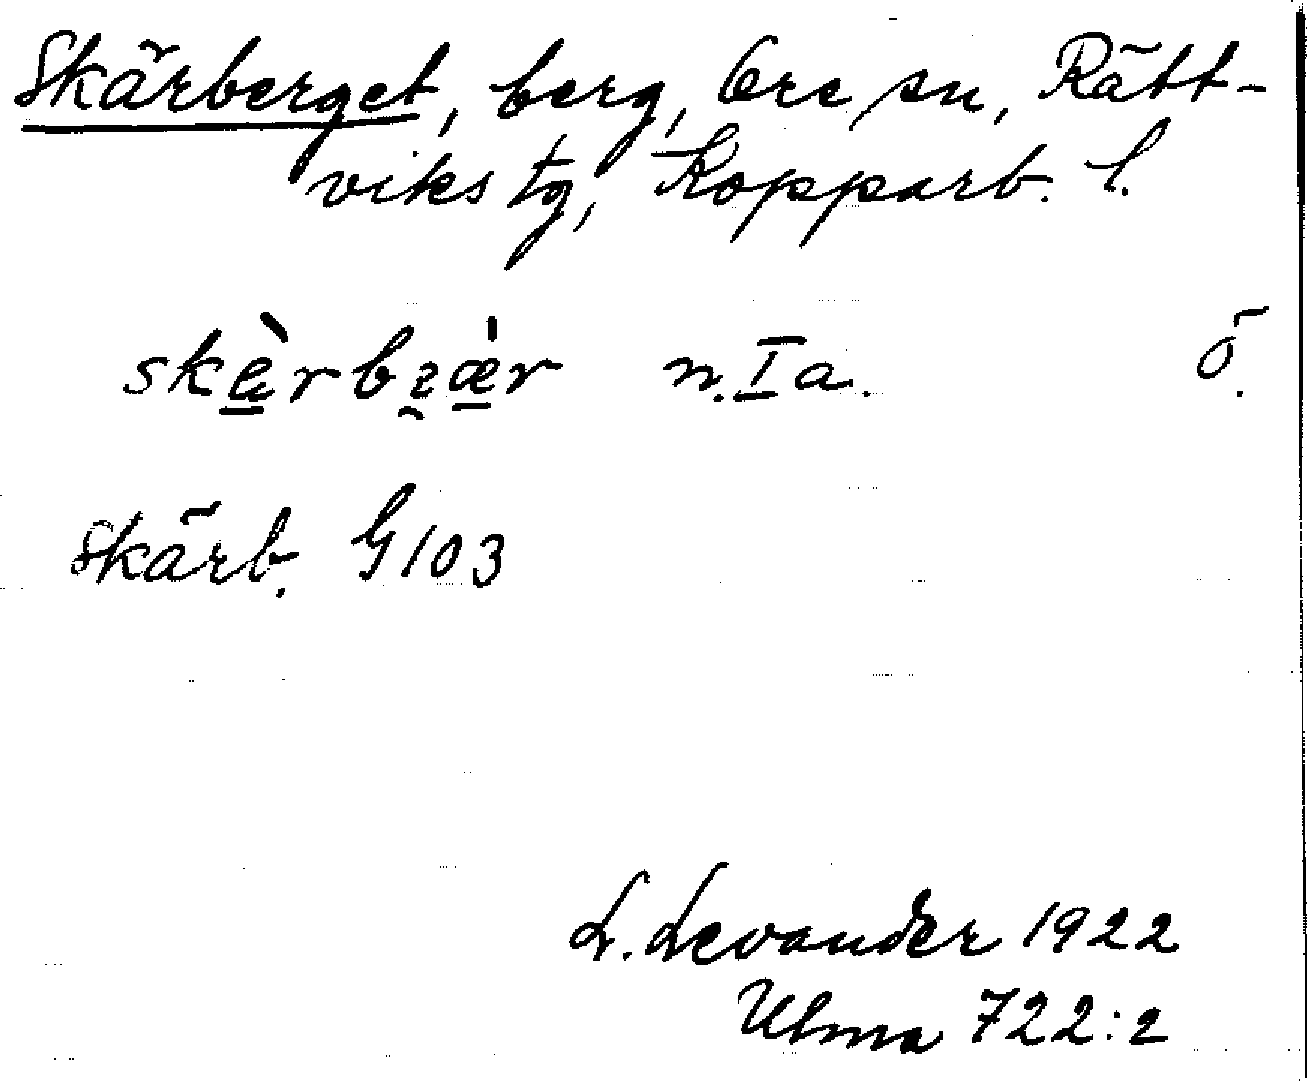 Skärberget, berg, Ore sn, Rätt-
viks tg, Kopparb. l.
n. I a. Ö.
Skärb. G 103
L. Levander 1922
Ulma 722:2